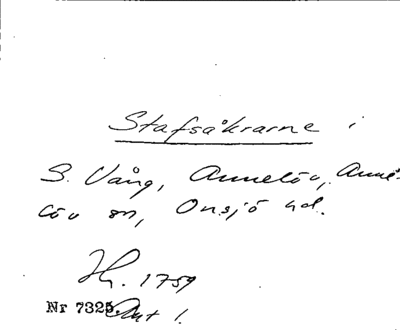 Stafsåkrarne i
S. Vång, Annelöv, Anne-
löv sn, Onsjö hd.
Hr. 1759
Nr 7325. Akt 1.